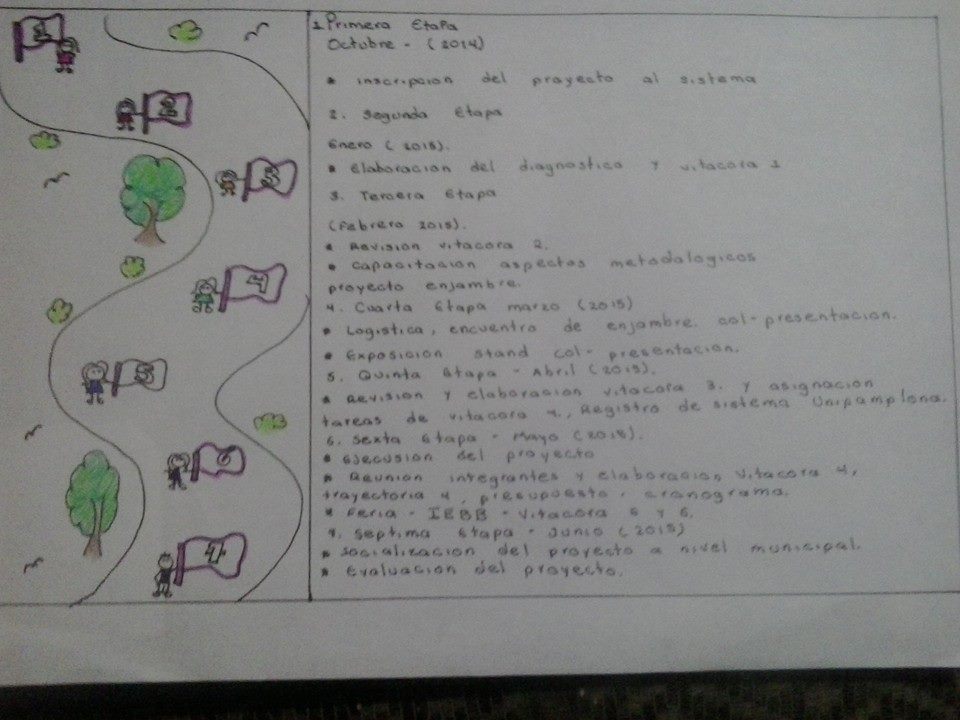 1
2
3
4
5
6
7
1 Primera Etapa
Octubre - (2014)
* inscripcion del proyecto al sistema
2. Segunda Etapa
Enero (2015).
* Elaboracion del diagnostico y vitacora 1
3. Tercera Etapa
(Febrero 2015).
* Revision vitacora 2.
* capacitacion aspectos metodalogicos
proyecto enjambre.
4. Cuarta Etapa marzo (2015)
* Logistica, encuentro de enjambre. col-presentacion.
* Exposicion stand col-presentacion.
5. Quinta Etapa - Abril (2015).
* Revision y elaboracion vitacora 3. y asignacion
tareas de vitacora 4., Registro de sistema Unipamplona.
6. Sexta Etapa - Mayo (2015).
* Ejecusion del proyecto
* Reunion integrantes y elaboracion vitacora 4,
trayectoria 4, presupuesto, cronograma.
* Feria - IEBB - vitacora 5 y 6.
7. Septima Etapa - Junio (2015)
* Socializacion del proyecto a nivel municipal.
* Evaluacion del proyecto.